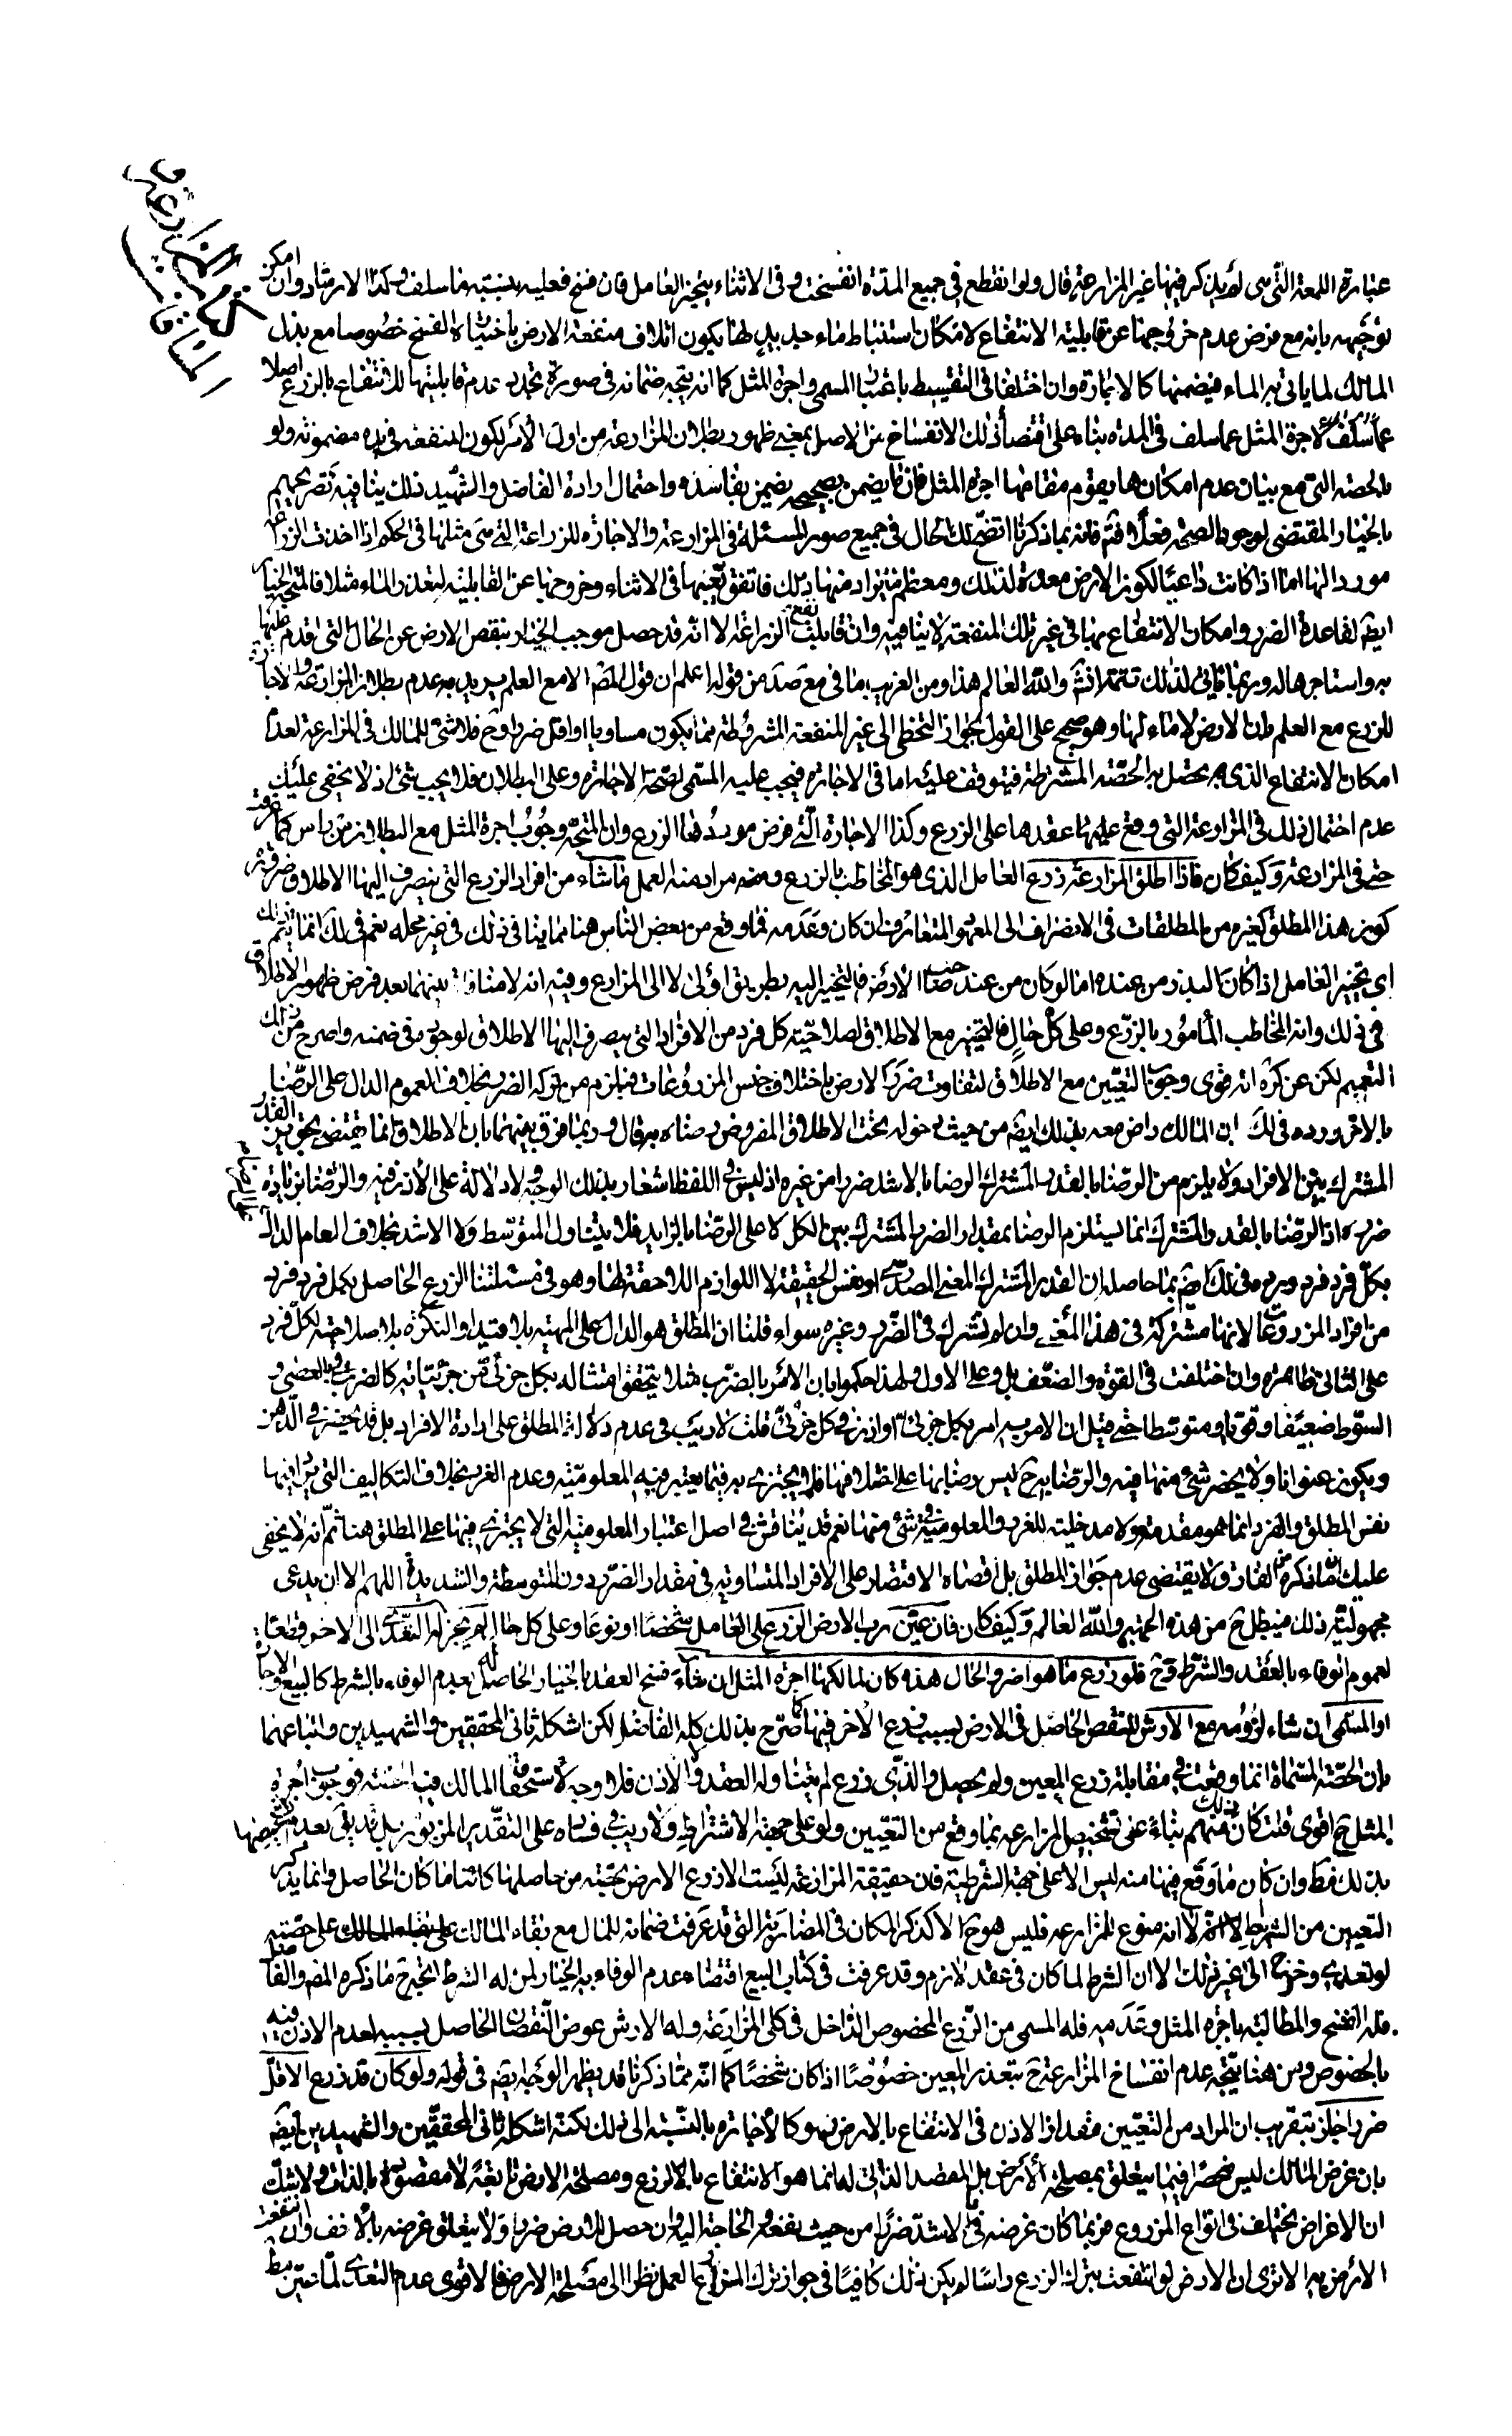 كتاب المزارعة و
المساقات
عبارة اللمعة التي لم يذكر فيها غير المزارعة قال ولو انقطع في جميع المدة انفسخت وفي الاثناء يتخير العامل فان فسخ فعليه بنسبة ما سلف وكذا الارشاد وان امكن
توجيهه بانه مع فرض عدم خروجها عن قابلية الانتفاع لامكان استنباط ماء جديد لها يكون اتلاف منفعة الارض باختياره الفسخ خصوصا مع بذل
المالك لما ياتي به الماء فيضمنها كالاجارة وان اختلفا في التقسيط باعتبار المسمى واجرة المثل كما انه يتجه ضمانه في صورة تجدد عدم قابليتها للانتفاع بالزرع اصلا
عما سلف لاجرة المثل عما سلف في المدة بناء على اقتضاء ذلك الانفساخ من الاصل بمعنى ظهور بطلان المزارعة من اول الامر لكون المنفعة في يده مضمونة ولو
بالحصة التي مع بيان عدم امكانها يقوم مقامها اجرة المثل فان ما يضمن بصحيحه يضمن بفاسده واحتمال ارادة الفاضل والشهيد ذلك ينافيه تصريحهم
بالخيار المقتضي لوجود الصحة فعلا فتم فانه بما ذكرنا اتضح لك الحال في جميع صور المسئلة في المزارعة والاجارة للزراعة التي هي مثلها في الحكم اذا اخذت الزراعة
موردا لها اما اذا كانت داعيا لكون الارض معدة لذلك ومعظم ما يراد منها ذلك فاتفق تعيبها في الاثناء وخروجها عن القابلية لتعذر الماء مثلا فالمتجه الخيار
ايضا لقاعدة الضرر وامكان الانتفاع بها في غير تلك المنفعة لا ينافيه وان قابلت نفع الزراعة الا انه قد حصل موجب الخيار بنقص الارض عن الحال التي اقدم عليها
به واستاجرها له وربما ياتي لذلك تتمة انش والله العالم هذا ومن الغريب ما في مع صد من قوله اعلم ان قول المص الا مع العلم يريد به عدم بطلان المزارعة والاجارة
للزرع مع العلم بان الارض لا ماء لها وهو صحيح على القول بجواز التخطي الى غير المنفعة المشروطة مما يكون مساويا او اقل ضررا وح فلا شئ للمالك في المزارعة لعدم
امكان الانتفاع الذي به يحصل الحصة المشترطة فيتوقف عليه اما في الاجارة فيجب عليه المسمى لصحة الاجارة وعلى البطلان فلا يجب شئ اذ لا يخفى عليك
عدم احتمال ذلك في المزارعة التي وقع عليها عقدها على الزرع وكذا الاجارة التي فرض موردها الزرع وان المتجه وجوب اجرة المثل مع البطلان من راس كما عرفته
حتى في المزارعة وكيف كان فاذا اطلق المزارعة زرع العامل الذي هو المخاطب بالزرع ومنه مراد منه العمل ما شاء من افراد الزرع التي ينصرف اليها الاطلاق ضرورة
كون هذا المطلق كغيره من المطلقات في الانصراف الى المعهود المتعارف ان كان وعدمه فما وقع من بعض الناس هنا مما ينافي ذلك في غير محله نعم في لك انما يتم ذلك
اي تخيير العامل اذا كان البذر من عنده اما لو كان من عند صاحب الارض فالتخيير اليه بطريق اولى لا الى المزارع وفيه انه لا منافاة بينهما بعد فرض ظهور الاطلاق
في ذلك وانه المخاطب المأمور بالزرع وعلى كل حال فالتخيير مع الاطلاق لصلاحية كل فرد من الافراد التي ينصرف اليها الاطلاق لوجوده في ضمنه واصرح من ذلك
التعميم لكن عن كره انه قوى وجوب التعيين مع الاطلاق لتفاوت ضرر الارض باختلاف جنس المزروعات فيلزم من تركه الضرر بخلاف العموم الدال على الرضا
بالاضر ورده في لك ان المالك راض معه بذلك ايضا من حيث دخوله تحت الاطلاق المفروض رضاه به قال وربما فرق بينهما بان الاطلاق انما يقتضي تجويز القدر
المشترك بين الافراد ولا يلزم من الرضا بالقدر المشترك الرضا بالاشد ضررا من غيره اذ ليس في اللفظ اشعار بذلك الوجه ولا دلالة على الاذن فيه والرضا بزيادة
ضرره اذ الرضا بالقدر المشترك انما يستلزم الرضا بمقدار الضرر المشترك بين الكل لا على الرضا بالزايد فلا يتناول المتوسط ولا الاشد بخلاف العام الدال على الرضا
بكل فرد فرد ورده في لك ايضا بما حاصله ان القدر المشترك المعنى المصدري او نفس الحقيقة لا اللوازم اللاحقة لها وهو في مسئلتنا الزرع الحاصل بكل فرد فرد
من افراد المزروعات لانها مشتركة في هذا المعنى وان لم تشترك في الضرر وغيره سواء قلنا ان المطلق هو الدال على المهية بلا قيد او النكرة بل صلاحيته لكل فرد
على الثاني ظاهرة وان اختلفت في القوة والضعف بل وعلى الاول ولهذا حكموا بان الامر بالضرب مثلا يتحقق امتثاله بكل جزئي من جزئياته كالضرب بالعصى و
السوط ضعيفا وقويا ومتوسطا حتى قيل ان الامر به امر بكل جزئي او اذن في كل جزئي قلت لا ريب في عدم دلالة المطلق على ارادة الافراد بل قد يحضر في الذهن
ويكون عنوانا ولا يحضر شئ منها فيه والرضا به ح ليس رضا بها على اختلافها فلا يجتزى به فيما يعتبر فيه المعلومية وعدم الغرر بخلاف التكاليف التي يراد فيها
نفس المطلق والفرد انما هو مقدمته ولا مدخلية للغرر والعلومية في شئ منها نعم قد يناقش في اصل اعتبار المعلومية التي لا يجتزى فيها على المطلق هنا ثم انه لا يخفى
عليك ان ما ذكره من الفارق لا يقتضي عدم جواز المطلق بل اقصاه الاقتصار على الافراد المتساوية في مقدار الضرر دون المتوسطة والشديدة اللهم الا ان يدعى
مجهولية ذلك فيبطل ح من هذه الجهة والله العالم وكيف كان فان عين رب الارض الزرع على العامل شخصا او نوعا وعلى كل حال لم يجز له التعدي الى الاخر قطعا
لعموم الوفاء بالعقد والشرط وح فلو زرع ما هو اضر والحال هذه كان لمالكها اجرة المثل ان شاء فسخ العقد بالخيار الحاصل له بعدم الوفاء بالشرط كالبيع والاجارة
او المسمى ان شاء لزومه مع الارش للنقص الحاصل في الارض بسبب زرع الاضر فيها كما صرح بذلك كله الفاضل لكن اشكله ثاني المحققين والشهيدين واتباعهما
بان الحصة المسماة انما وقعت في مقابلة زرع المعين ولم يحصل والذي زرع لم يتناوله العقد ولا الاذن فلا وجه لاستحقاق المالك فيه الحصة فوجوب اجرة
المثل ح اقوى قلت كان ذلك منهم بناء على تشخيص المزارعة بما وقع من التعيين ولو على جهة الاشتراط ولا ريب في فساده على التقدير المزبور بل قد يقع بعدم تشخيصها
بذلك مط وان كان ما وقع فيها منه ليس الا على جهة الشرطية فان حقيقة المزارعة ليست الا زرع الارض بحصة من حاصلها كائنا ما كان الحاصل وانما يذكر
التعيين من الشرط لا انه منوع للمزارعة فليس هو ح الا كذكر المكان في المضاربة التي قد عرفت ضمانه للمال مع بقاء المالك على حصته
لو تعدى وخرج الى غير ذلك الا ان الشرط لما كان في عقد لازم وقد عرفت في كتاب البيع اقتضاء عدم الوفاء به الخيار لمن له الشرط اتجه ح ما ذكره المص والفاضل
فله الفسخ والمطالبة باجرة المثل وعدمه فله المسمى من الزرع المخصوص الداخل في كلي المزارعة وله الارش عوض النقصان الحاصل بسببه لعدم الاذن فيه
بالخصوص ومن هنا يتجه عدم انفساخ المزارعة ح بتعذر المعين خصوصا اذا كان شخصا كما انه مما ذكرنا قد يظهر الوجه ايضا في قوله ولو كان قد زرع الاقل
ضررا جاز بتقريب ان المراد من التعيين مقدار الاذن في الانتفاع بالارض فهو كالاجارة بالنسبة الى ذلك لكنه اشكله ثاني المحققين والشهيدين ايضا
بان غرض المالك ليس منحصرا فيما يتعلق بمصلحة الارض بل المقصد الذاتي له انما هو الانتفاع بالزرع ومصلحة الارض تابعة لا مقصودة بالذات ولا شك
ان الاغراض تختلف في انواع المزروع فربما كان غرضه في الاشد ضررا من حيث نفعه او الحاجة اليه وان حصل للارض ضرر ولا يتعلق غرضه بالاخف وان انتفعت
الارض به الا ترى ان الارض لو انتفعت بترك الزرع راسا لم يكن ذلك كافيا في جواز ترك المزارع العمل نظرا الى مصلحة الارض فالاقوى عدم التعدي لما تعين مط